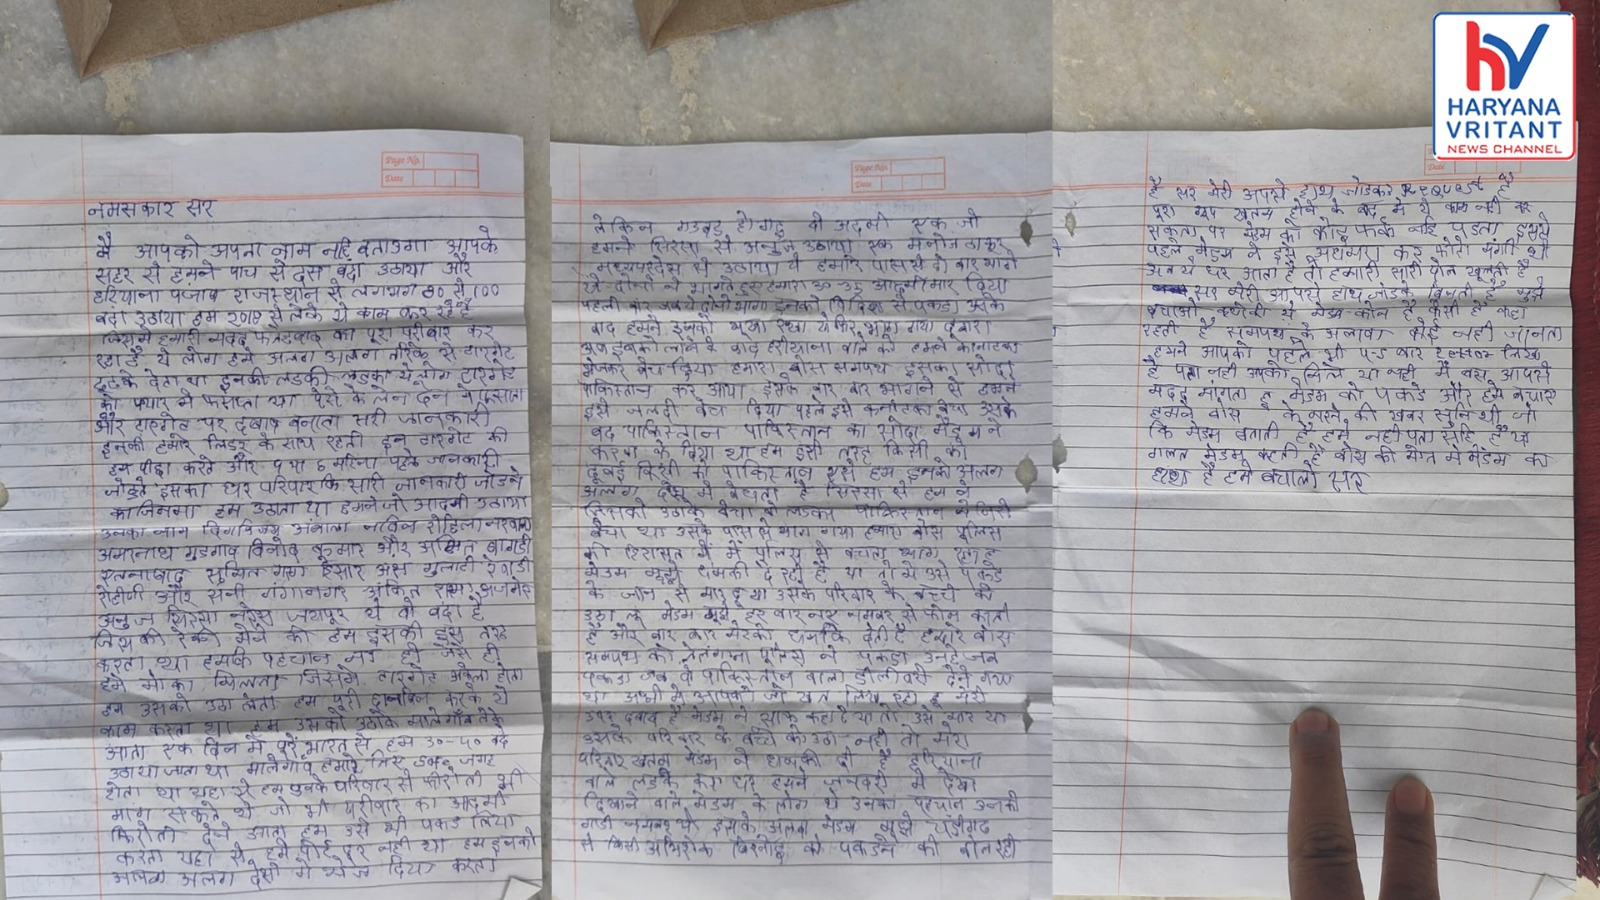 HARYANA
VRITANT
NEWS CHANNEL
Page No.
Date
नमसकार सर
मै आपको अपना नाम नहि बताउगा आपके
सहर से हमने पाच से दस बंदा उठाया और
हरियाना पंजाब राजस्थान से लगभग 80 से 100
बंदा उठाया हम 2018 से लेके ये काम कर रहे है
जिसमे हमारी मदद का पूरा परीवार कर
रहा है ये लोग हमे अलग अलग तरिके से टारगेट
ढूढके देता था इनकी लडकी लडका ये लोग टारगेट
को प्यार मे फसाता या पैसे के लेन देन मे फसाता
और टारगेट पर दबाव बनाता सारी जानकारी
इनकी हमारे लिडर के साथ रहती इन टारगेट की
हम पीछा करते और 4 या 6 महिना पहले जानकारी
जोडते इसका घर परिवार कि सारी जानकारी जोडने
हम उठाता था हमने जो आदमी उठाया
उनका नाम अंबाला नविन रोहिला नरवाना
अमरनाथ गुडगाव विनोद कुमार और अमित बागडी
सुमित गर्ग हिसार गुलाटी रेवाडी
और सनी गंगानगर अंकित शर्मा अजमेर
अनुज सिरसा नरेस जयपूर ये वो बंदा है
जिसकी रेकी मैने की हम इसकी इस तरह
करता था हमारि पहचान ना हो जैसे ही
हमे मोका मिलता जिसमे टारगेट अकेला होता
हम उसको उठा लेता हम पूरी छानबिन करके ये
काम करता था हम उसको उठाके मालेगाँव लेके
आता एक दिन मे पूरे भारत से हम 30-40 बंदे
उठाया जाता था मालेगाँव हमारे लिए जगह
होता था यहा से हम उनके परिवार से फीरोती भी
मांग सकते थे जो भी परीवार का आदमी
फिरोती देने आता हम उसे भी पकड लिया
करता यहा से हमे बोर्डर दूर नही था हम इनको
अलग अलग देशो मे भेज दिया करता
Page No.
Date
लेकिन गडबड हो गइ दो आदमी एक जो
हमने सिरसा से अनुज उठाया एक मनोज ठाकुर
मध्यपरदेस से उठाया ये हमारे पास से दो बार भागे
थे दोनो ने भागते हुए हमारा आदमी मार दिया
पहली बार जब ये दोनो भागा इनको पकडा उसके
बाद हमने इनको भूखा रखा ये फिर भाग गया दुबारा
बाद हरीयाना वाले को हमने कर्नाटका
भेजकर बेच दिया हमारा बोस समपथ इसका सोदा
पाकिस्तान कर आया इसके बार बार भागने से हमने
इसे जलदी बेच दिया पहले इसे कर्नाटका बेचा उसके
बद पाकिस्तान पाकिस्तान का सोदा मैडम ने
करवा के दिया था हम इसी तरह किसी को
दूबई किसी को पाकिस्तान हम इनको अलग
अलग देस मे बेचता है सिरसा से हम ने
जिसको उठाके बेचा वो लडका पाकिस्तान मे जिसे
बेचा था उसके पास से भाग गया हमारा बोस पुलिस
की हिरासत मे मै पोलिस से बचता भाग रहा हू
मेडम मुझे धमकी दे रही है या तो मे उसे पकडे
के जान से मार दू या उसके परिवार के बच्चे को
उठा लू मेडम मुझे हर बार नए नमबर से फोन करती
है और बार बार मेरेको धमकि देती है हमारे बोस
समपथ को तेलंगाना पुलिस ने पकडा उन्हे जब
पकडा जब वो पाकिस्तान वाला डीलीवरी देने गया
था अभी मै आपको जो खत लिख रहा हू मेरे
उपर दबाव है मेडम ने साफ कहा है या तो उसे मार या
उसके परिवार के बच्चे को उठा नही तो मेरा
परिवार खतम मेडम ने धमकी दी है हरियाना
वाले लडके का घर हमने जनवरी मे देखा
दिखाने वाले मेडम के लोग थे उनका पहचान उनकी
गाडी नमबर थे इसके अलवा मेडम मुझे चंडीगढ
से किसी अभिशेक बिश्नोई को पकडने को बोल रही
है सर मेरी आपसे हाथ जोडकर request है
पूरा ग्रुप खतम होने के बाद मे ये काम नही कर
सकता पर मेडम को कोई फर्क नहि पडता इससे
पहले मेडम ने इसे अधमरा कर फोटो मंगी थी
अब ये घर आता है तो हमारी सारी पोल खूलती है
सर मेरी आपसे हाथ जोडके बिनती है मुझे
बचाओ क्योकी ये मेडम कोन है कैसी है कहा
रहती है समपथ के अलावा कोई नही जानता
हमने आपको पहले भी बार लिख
है पता नही आपको मिले या नही मै बस आपसे
मदद मांगता हू मेडम को पकडे और हमे बचाए
हमने बोस के मरने की खबर सुनि थी जो
कि मेडम बताती है हमे नही पता सहि है या
गलत मेडम कहती है बोस की मोत मे मेडम का
हाथ है हमे बचालो सर